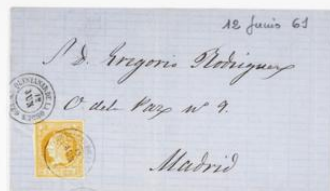 12 Junio 61
A D. Gregorio Rodriguez
C. de la Paz nº 9.
Madrid